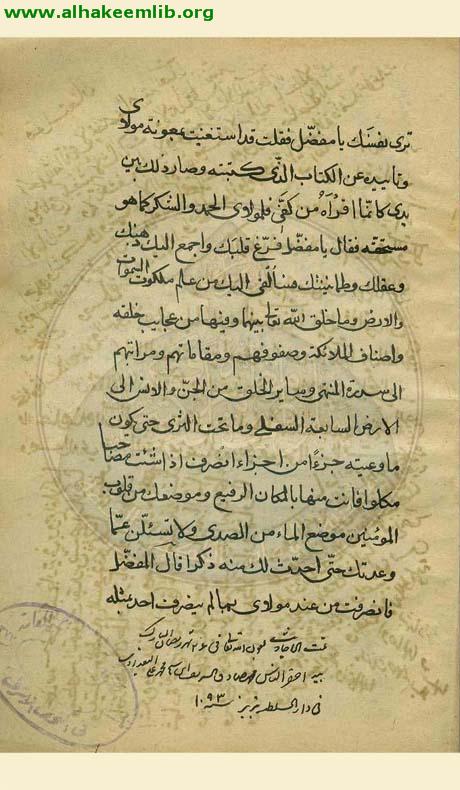 www.alhakeemlib.org
ترى نفسك يا مفضّل فقلت قد استغنيت بمعونة مولاى
وتاييده عن الكتاب الذى كتبته وصار ذلك بين
يدى كانّما اقرأه من كفّى فلمولاى الحمد والشكر كما هو
مستحقه فقال يا مفضّل فرّغ قلبك واجمع اليك ذهنك
وعقلك وطمانينتك فسالقى اليك من علم ملكوت السموات
والارض وما خلق الله تعا بينها وفيها من عجايب خلقه
واصناف الملائكة وصفوفهم ومقاماتهم ومراتبهم
الى سدرة المنتهى وساير الخلق من الجن والانس الى
الارض السابعة السفلى وما تحت الثرى حتى يكون
ما وعيته جزءًا من اجزاء انصرف اذا شئت مصاحبا
مكلوا فانت منّا بالمكان الرفيع وموضعك من قلوب
المؤمنين موضع الماء من الصدى ولا تسئلن عمّا
وعدتك حتّى احدّث لك منه ذكرا قال المفضّل
فانصرفت من عند مولاى بما لم ينصرف احد بمثله
تمت بعون الله تعالى فى شهر رمضان المبارك
احقر الناس محمد صادق
فى دار السلطنه تبريز سنه ١٠٩٣